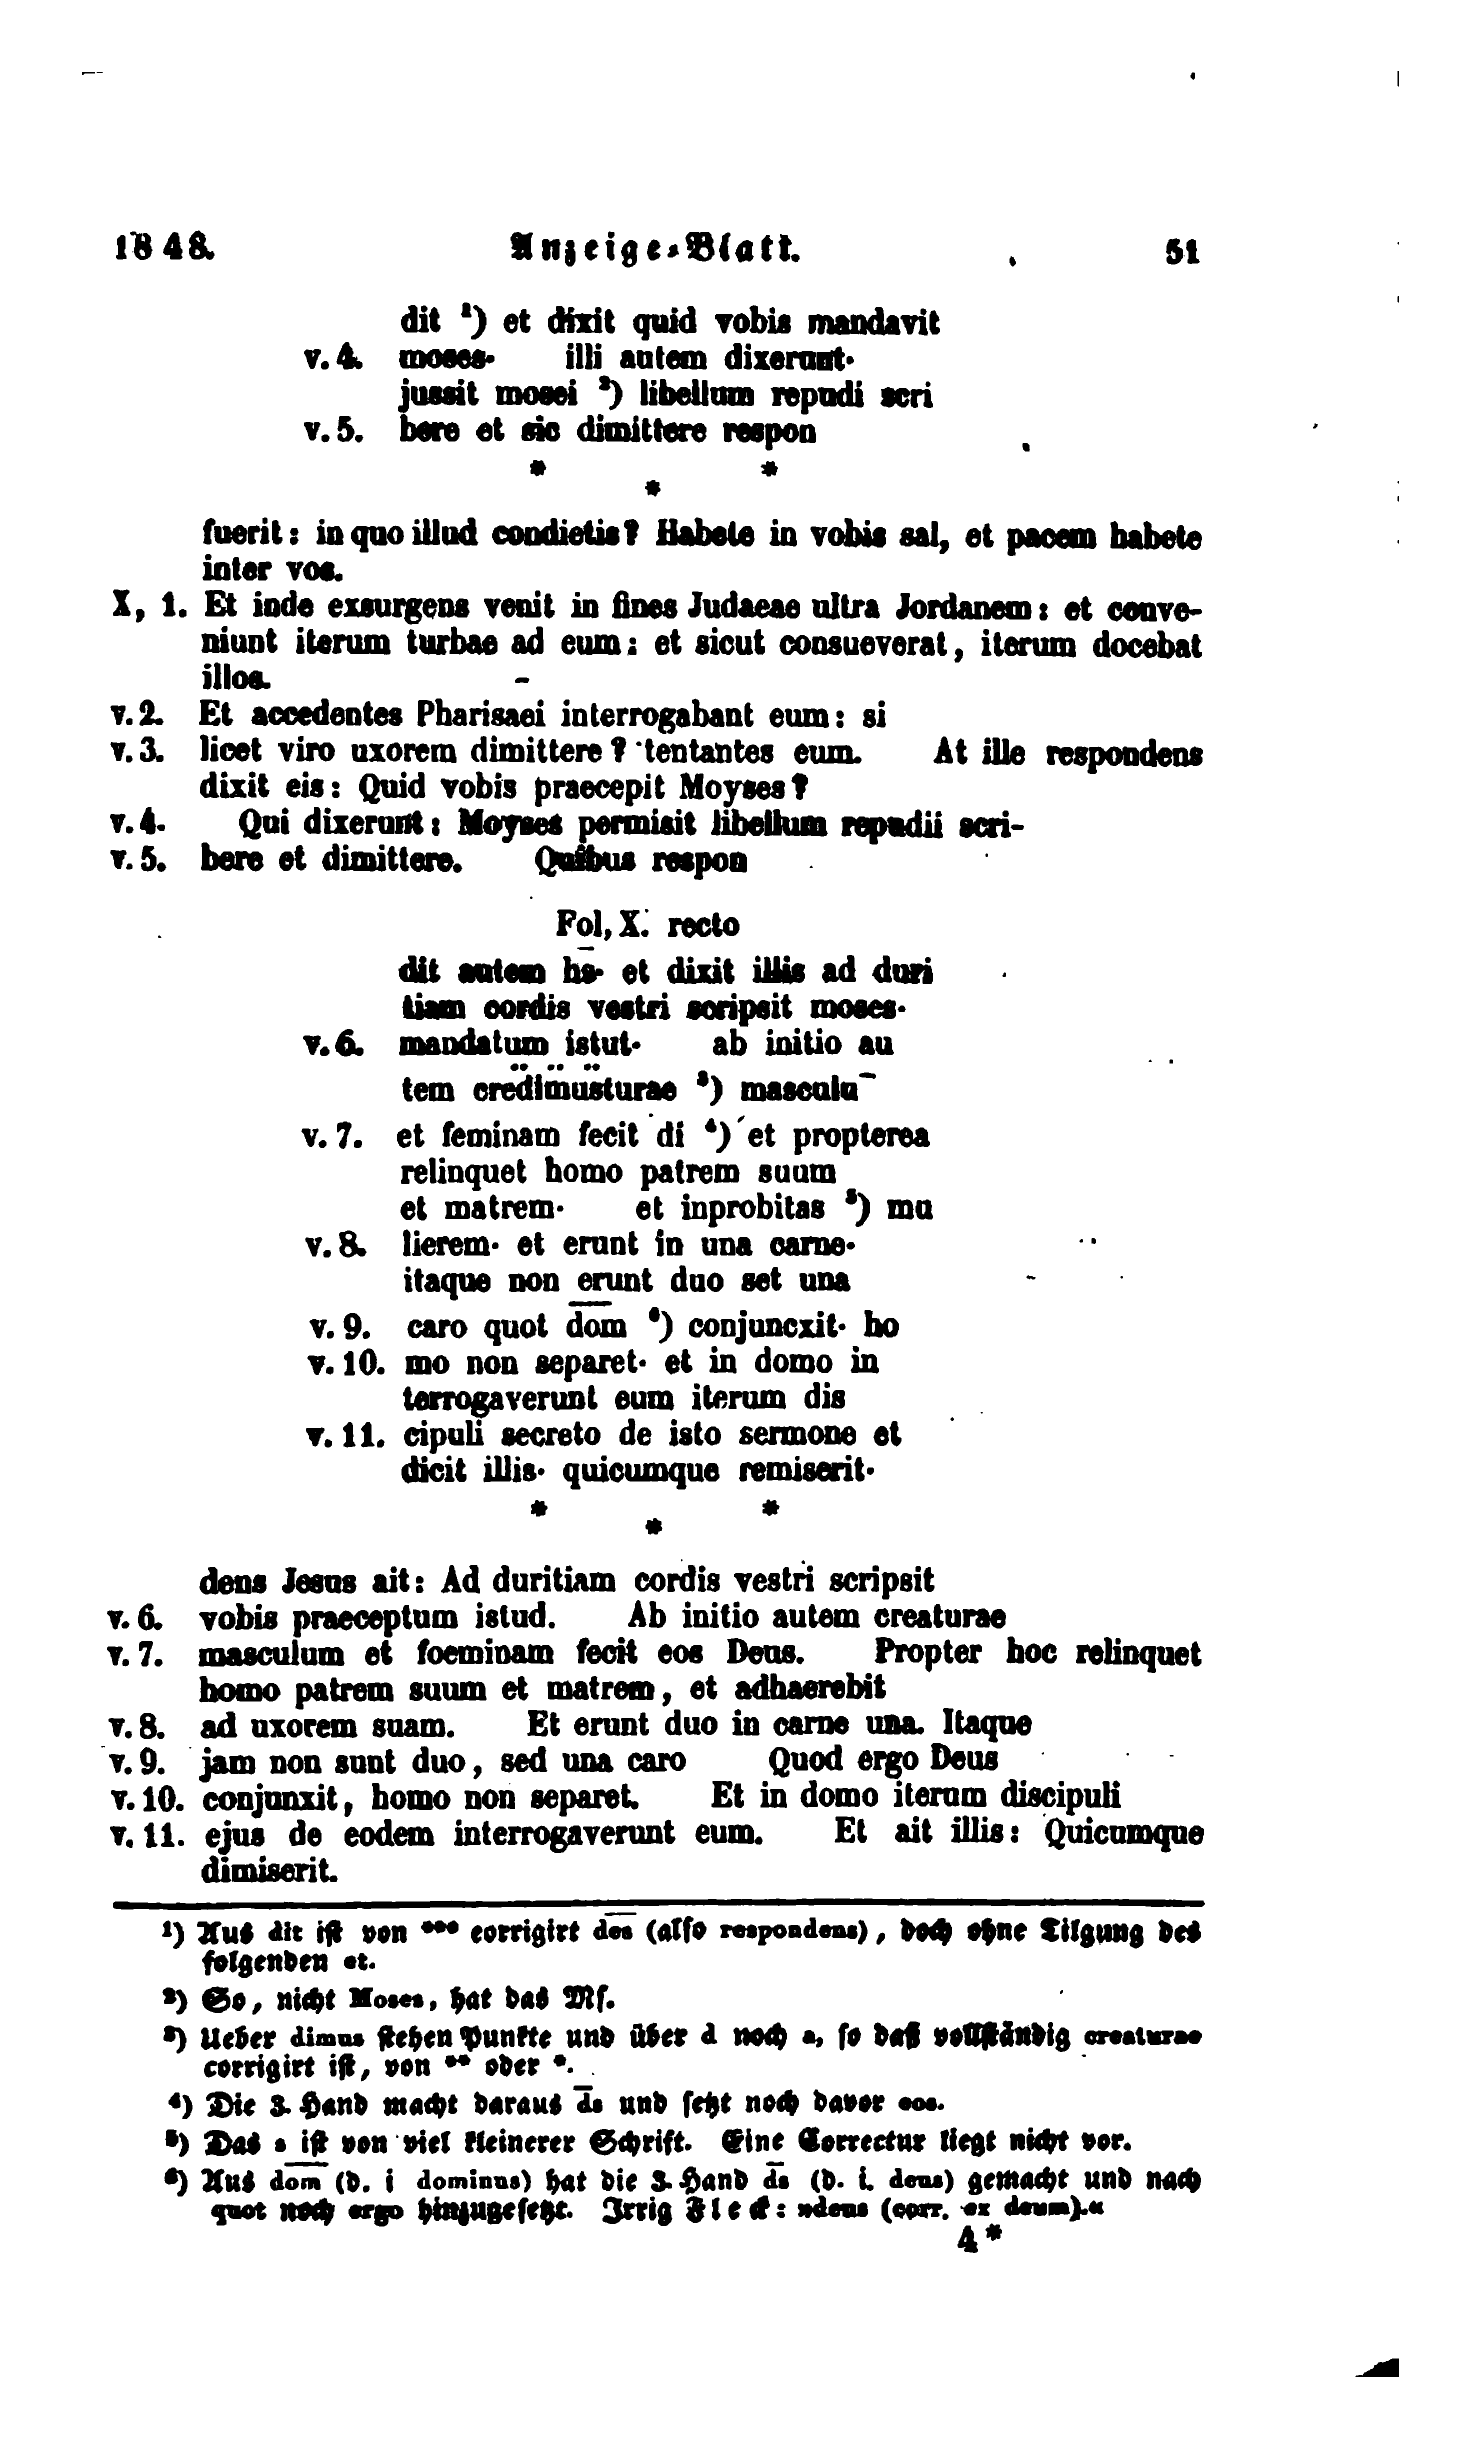 1848. Anzeige-Blatt. 51
dit ¹) et dixit quid vobis mandavit
v. 4. moses· illi autem dixerunt·
jussit mosei ²) libellum repudi scri
v. 5. bere et sic dimittere respon
* * *
fuerit: in quo illud condietis? Habete in vobis sal, et pacem habete
inter vos.
X, 1. Et inde exsurgens venit in fines Judaeae ultra Jordanem: et conve-
niunt iterum turbae ad eum: et sicut consueverat, iterum docebat
illos.
v. 2. Et accedentes Pharisaei interrogabant eum: si
v. 3. licet viro uxorem dimittere? tentantes eum. At ille respondens
dixit eis: Quid vobis praecepit Moyses?
v. 4. Qui dixerunt: Moyses permisit libellum repudii scri-
v. 5. bere et dimittere. Quibus respon
Fol, X. recto
dit autem hs̄· et dixit illis ad duri
tiam cordis vestri scripsit moses·
v. 6. mandatum istut· ab initio au
tem cre̎di̎mu̎sturae ³) masculu¯
v. 7. et feminam fecit di ⁴) et propterea
relinquet homo patrem suum
et matrem· et inprobitas ⁵) mu
v. 8. lierem· et erunt in una carne·
itaque non erunt duo set una
v. 9. caro quot d̅o̅m̅ ⁶) conjuncxit· ho
v. 10. mo non separet· et in domo in
terrogaverunt eum iterum dis
v. 11. cipuli secreto de isto sermone et
dicit illis· quicumque remiserit·
* * *
dens Jesus ait: Ad duritiam cordis vestri scripsit
v. 6. vobis praeceptum istud. Ab initio autem creaturae
v. 7. masculum et foeminam fecit eos Deus. Propter hoc relinquet
homo patrem suum et matrem, et adhaerebit
v. 8. ad uxorem suam. Et erunt duo in carne una. Itaque
v. 9. jam non sunt duo, sed una caro Quod ergo Deus
v. 10. conjunxit, homo non separet. Et in domo iterum discipuli
v. 11. ejus de eodem interrogaverunt eum. Et ait illis: Quicumque
dimiserit.
¹) Aus dit ist von *** corrigirt d̅e̅s̅ (also respondens), doch ohne Tilgung des
folgenden et.
²) So, nicht Moses, hat das Ms.
³) Ueber dimus stehen Punkte und über d noch a, so daß vollständig creaturae
corrigirt ist, von ** oder *.
⁴) Die 3. Hand macht daraus d̅s̅ und setzt noch davor eos.
⁵) Das s ist von viel kleinerer Schrift. Eine Correctur liegt nicht vor.
⁶) Aus d̅o̅m̅ (d. i dominus) hat die 3. Hand d̅s̅ (d. i. deus) gemacht und nach
quot noch ergo hinzugesetzt. Irrig Fleck: »deus (corr. ex deum).«
4*